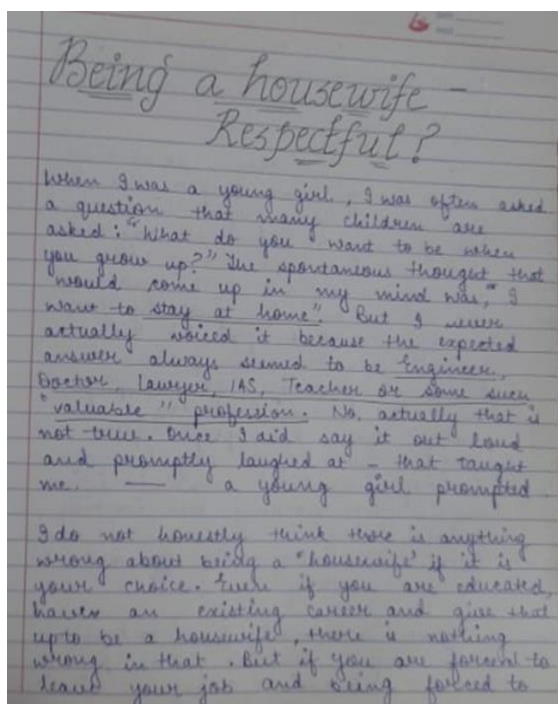 Being a housewife -
Respectful?
When I was a young girl, I was often asked
a question that many children are
asked: "What do you want to be when
you grow up?" The spontaneous thought that
would come up in my mind was, "I
want to stay at home". But I never
actually voiced it because the expected
answer always seemed to be Engineer,
Doctor, Lawyer, IAS, Teacher or some such
"valuable" profession. No, actually that is
not true. Once I did say it out loud
and promptly laughed at - that taught
me. — a young girl prompted.
I do not honestly think there is anything
wrong about being a "housewife" if it is
your choice. Even if you are educated,
an existing career and give that
up to be a housewife, there is nothing
wrong in that. But if you are forced to
leave your job and being forced to